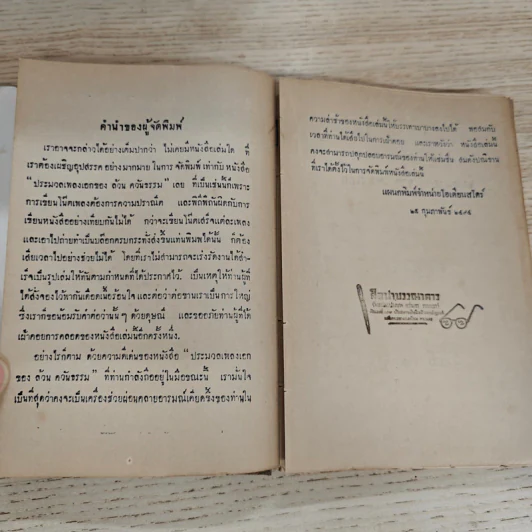 คำนำของผู้จัดพิมพ์
เราอาจจะกล่าวได้อย่างเต็มปากว่า ไม่เคยมีหนังสือเล่มใด ที่
เราต้องเผชิญอุปสรรค อย่างมากมาย ในการ จัดพิมพ์ เท่ากับ หนังสือ
“ประมวลเพลงเอกของ ล้วน ควันธรรม” เลย ที่เป็นเช่นนี้ก็เพราะ
การเขียนโน๊ตเพลงต้องการความปราณีต และพิถีพิถันผิดกับการ
เขียนหนังสืออย่างเทียบกันไม่ได้ กว่าจะเขียนโน๊ตเสร็จแต่ละเพลง
และเอาไปถ่ายทำเป็นบล๊อกครบกระทั่งส่งขึ้นแท่นพิมพ์ได้นั้น ก็ต้อง
เสียเวลาไปอย่างช่วยไม่ได้ โดยที่เราไม่สามารถจะเร่งรัดงานให้สำ-
เร็จเป็นรูปเล่มให้ทันตามกำหนดที่ได้ประกาศไว้ เป็นเหตุให้ท่านผู้ที่
ได้สั่งจองไว้พากันเดือดเนื้อร้อนใจ และต่อว่าต่อขานเราเป็นการใหญ่
ซึ่งเราก็ขอน้อมรับคำต่อว่านั้น ๆ ด้วยดุษณี และขออภัยท่านผู้ที่ได้
เฝ้าคอยการคลอดของหนังสือเล่มนี้อีกครั้งหนึ่ง
อย่างไรก็ตาม ด้วยความดีเด่นของหนังสือ “ประมวลเพลงเอก
ของ ล้วน ควันธรรม” ที่ท่านกำลังถืออยู่ในมือขณะนี้ เรามั่นใจ
เป็นที่สุดว่าคงจะเป็นเครื่องช่วยผ่อนคลายอารมณ์เคียดขึ้งของท่านใน
ความล่าช้าของหนังสือเล่มนี้ให้บรรเทาเบาบางลงไปได้ พอสมกับ
เวลาที่ท่านได้เสียไปในการเฝ้าคอย และเราหวังว่า หนังสือเล่มนี้
คงจะสามารถปลุกปลอบอารมณ์ของท่านให้แช่มชื่น อันดังปณิธาน
ที่เราได้ตั้งไว้ในการจัดพิมพ์หนังสือเล่มนี้
แผนกพิมพ์จำหน่ายโอเดียนสโตร์
๒๕ กุมภาพันธ์ ๒๔๙๔
ศิลปาบรรณาคาร